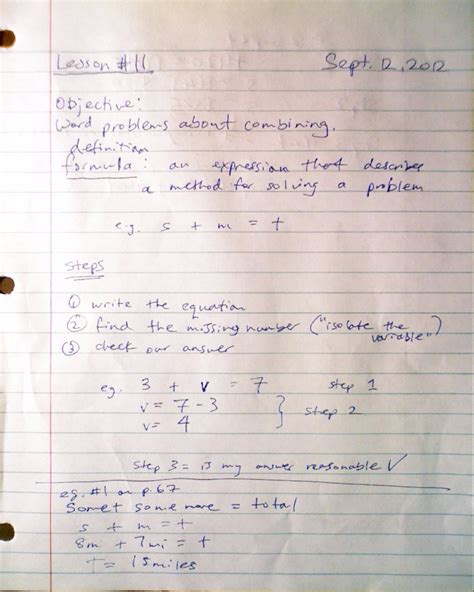 Lesson #11 Sept. 12, 2012
Objective:
Word problems about combining.
definition
formula: an expression that describes
a method for solving a problem
e.g. s + m = t
Steps
① write the equation
② find the missing number ("isolate the
variable")
③ check our answer
eg. 3 + v = 7 step 1
v = 7 - 3 } step 2
v = 4
step 3 = is my answer reasonable √
eg. #1 on p.67
Some + some more = total
s + m = t
8mi + 7mi = t
T = 15miles